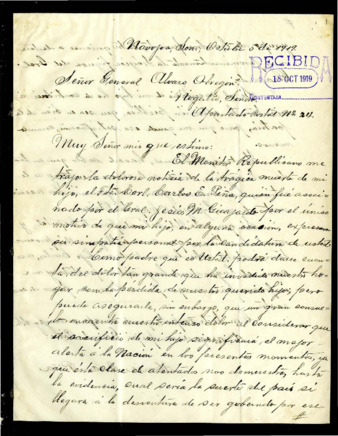 Navojoa, Son., Octubre 5 de 1919.
RECIBIDA
15 OCT 1919
Señor General Alvaro Obregón.
Nogales, Sonora.
Apartado Postal Nº 211.
Muy Señor mio que estimo:
El Monitor Republicano me
trajo la dolorosa noticia de la trágica muerte de mi
hijo, el Tte. Corl. Carlos E. Peña, quien fué asesi-
nado por el Gral. Jesús M. Guajardo por el único
motivo de que mi hijo, en alguna ocasion, expresara
su simpatia personal por la candidatura de usted.
Como padre que es Usted, podrá darse cuen-
ta del dolor tan grande que ha invadido nuestro ho-
gar con la pérdida de nuestro querido hijo; pero
puedo asegurarle, sin embargo, que un gran consue-
lo encuentra nuestro intenso dolor al considerar que
el sacrificio de mi hijo significará el mejor
alerta á la Nación en los presentes momentos, ya
que ésta clase de atentados nos demuestra, hasta
la evidencia, cual seria la suerte del pais si
llegara á la desventura de ser gobernado por ese
#